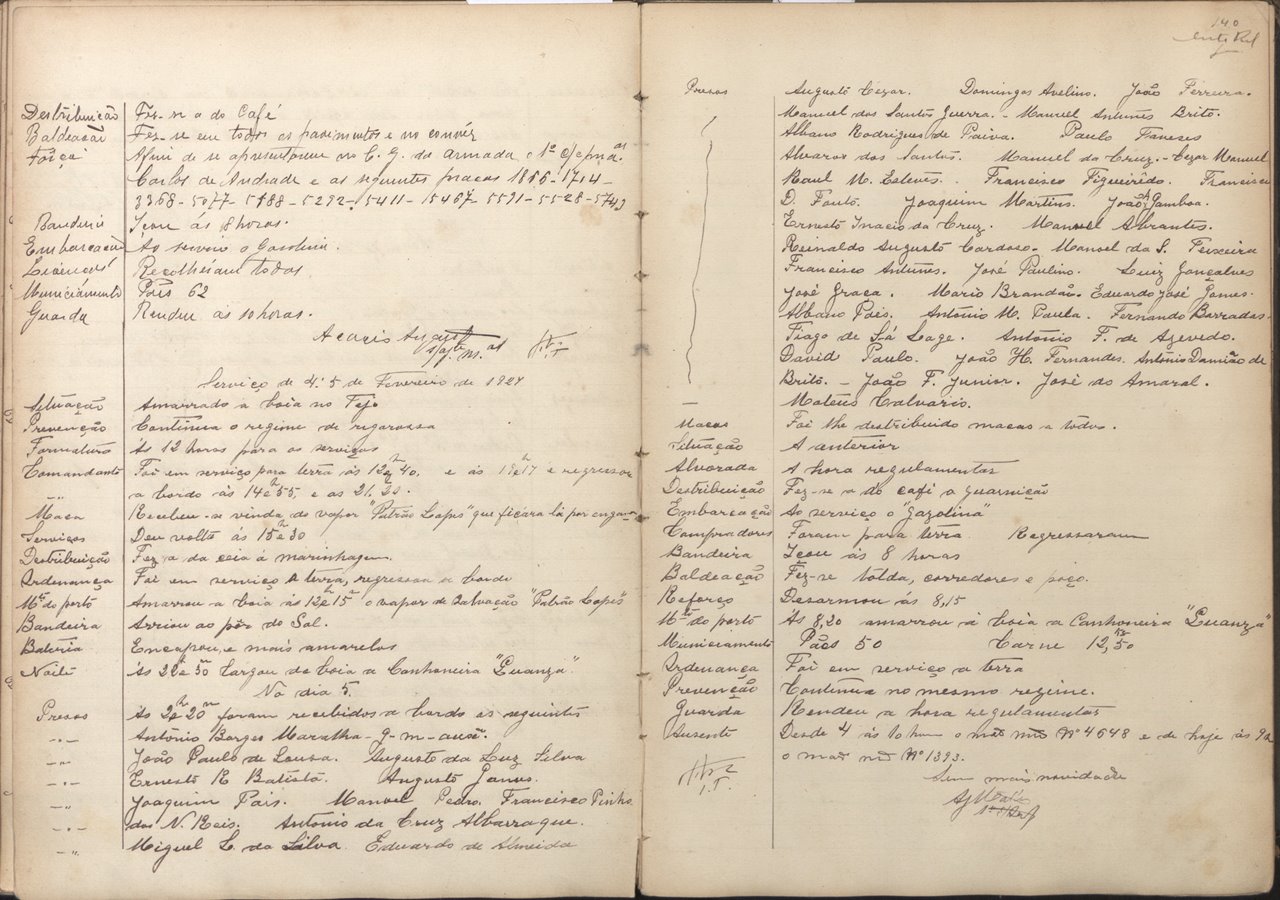 Destribuição Fez-se a do Café
Baldeação Fez-se em todos os pavimentos e no convéz
Fôrça Afim de se apresentarem no C. G. da Armada o 1º
Carlos de Andrade e as seguintes praças 1866-1714-
3368-5077-5188-5292-15411-15467-5591-5528-5743
Bandeira Içou ás 8 horas.
Embarcação Ao serviço o Gasolina.
Licenças Recolheram todos.
Municiamento Pães 62
Guarda Rendeu ás 10 horas.
Acacio Augusto
Serviço de 4 5 de Fevereiro de 1927
Situação Amarrado a boia no Tejo
Prevenção Continua o regime de rigorossa
Formatura Ás 12 horas para os serviços
Comandante Foi em serviço para terra ás 12h40, e ás 17 e regressou
a bordo ás 14e55, e as 21.20.
Maca Recebeu-se vinda do vapor "Patrão Lopes" que ficára lá por engano
Serviços Deu volta ás 15e30
Destribuição Fez a da ceia á marinhagem.
Ordenança Foi em serviço a terra, regressou a bordo
Mto do porto Amarrou a boia ás 12e15 o vapor de Salvação "Patrão Lopes"
Bandeira Arriou ao pôr do Sol.
Bateria Encapou, e mais amarelos
Noite Ás 22e30 largou da boia a Canhoneira "Zuanza".
No dia 5.
Presos Ás 2e20m foram recebidos a bordo os seguintes
-.- António Borges Maratha-g-m-
-.. João Paulo de Sousa. Augusto da Luz Silva
-.. Ernesto R Batista. Augusto
-.. Joaquim Pais. Manoel Pedro. Francisco Pinho
-.- dos N. Reis. António da Cruz Albarraque.
-.. Miguel L. da Silva. Eduardo de Almeida
140
Presos Augusto Cezar. Domingos Avelino. João Ferreira.
Manuel dos Santos Guerra. - Manuel Antunes Brito.
Albano Rodrigues de Paiva. Paulo Tavares
Alvaro dos Santos. Manuel da Cruz. - Cezar Manuel
Raul M. Esteves. Francisco Figueirêdo. Francisco
D. Fonto. Joaquim Martins. João Gamboa.
Ernesto Inacio da Cruz. Manuel Abrantes.
Reinaldo Augusto Cardoso. - Manoel da S. Teixeira
Francisco Antunes. José Paulino. Luiz Gonçalves
José Graça. Mario Brandão. Eduardo José Gomes.
Albano Pais. António M. Paula. Fernando Barradas.
Tiago de Sá Lage. António F. de Azevedo.
David Paulo. João H. Fernandes. António Damião de
Brito. - João F. Junior. José do Amaral.
- Mateus Calvario.
Macas Foi lhe destribuido macas a todos.
Situação A anterior
Alvorada A hora regulamentar
Destribuição Fez-se a do café a guarnição
Embarcação Ao serviço o "Gazolina"
Compradores Foram para terra. Regressaram
Bandeira Içou ás 8 horas
Baldeação Fez-se tolda, corredores e poço.
Reforço Desarmou ás 8,15
Mto do porto Ás 8,20 amarrou á boia a Canhoneira "Zuanza"
Municiamento Pães 50 Carne 12,50
Ordenança Foi em serviço a terra
Prevenção Continua no mesmo regime.
Guarda Rendeu a hora regulamentar
Ausente Desde 4 ás 10 o Nº 4648 e de hoje ás 9h
o Nº 1393.
Sem mais novidade